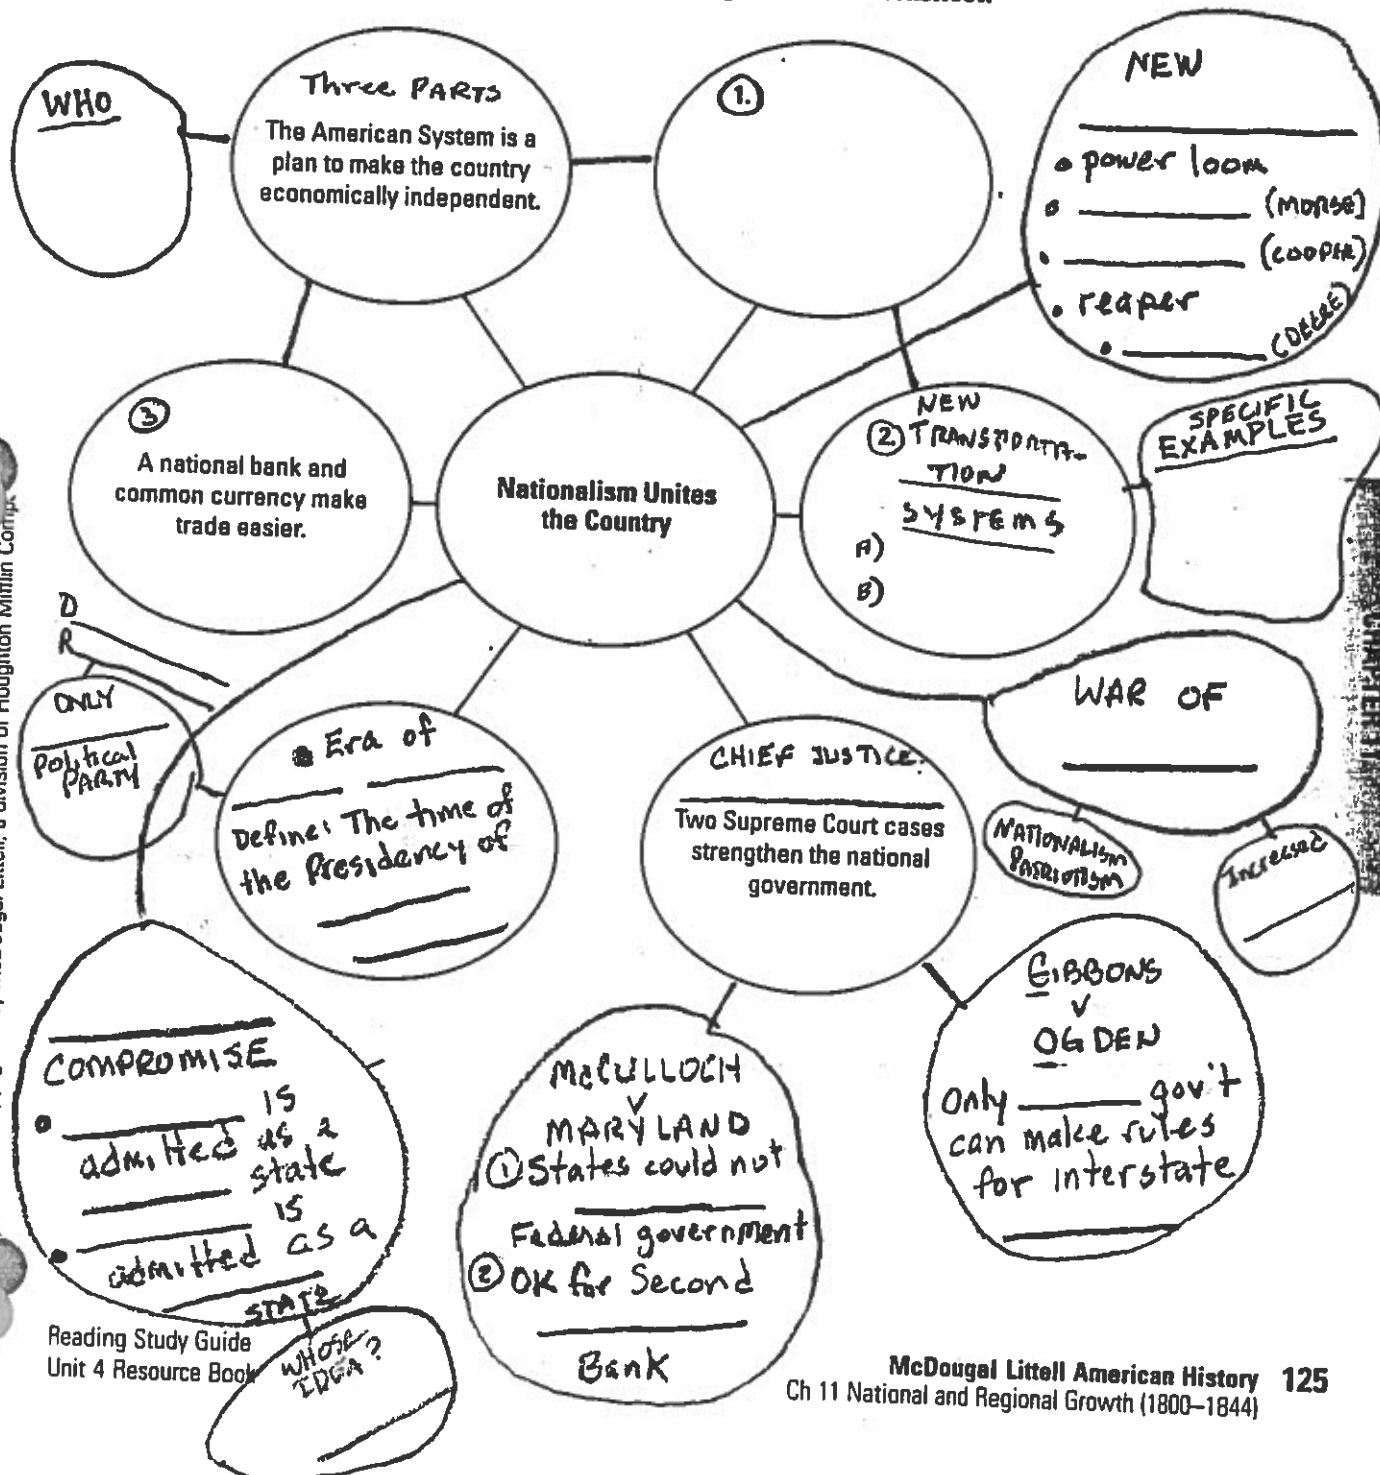 WHO
Three PARTS
The American System is a
plan to make the country
economically independent.
1.
NEW
• power loom
• (MORSE)
• (COOPER)
• reaper
• (DEERE)
3
A national bank and
common currency make
trade easier.
Nationalism Unites
the Country
NEW
2. TRANSPORTA-
TION
SYSTEMS
A)
B)
SPECIFIC
EXAMPLES
D
R
ONLY
Political
PARTY
Era of
Define: The time of
the Presidency of
CHIEF JUSTICE:
Two Supreme Court cases
strengthen the national
government.
WAR OF
NATIONALISM
PATRIOTISM
Increased
COMPROMISE
• is
admitted as a
state
• is
admitted as a
STATE
WHOSE
IDEA?
McCULLOCH
V
MARYLAND
1 States could not
Federal government
2 OK for Second
Bank
GIBBONS
V
OGDEN
Only gov't
can make rules
for interstate
Reading Study Guide
Unit 4 Resource Book
McDougal Littell American History 125
Ch 11 National and Regional Growth (1800–1844)